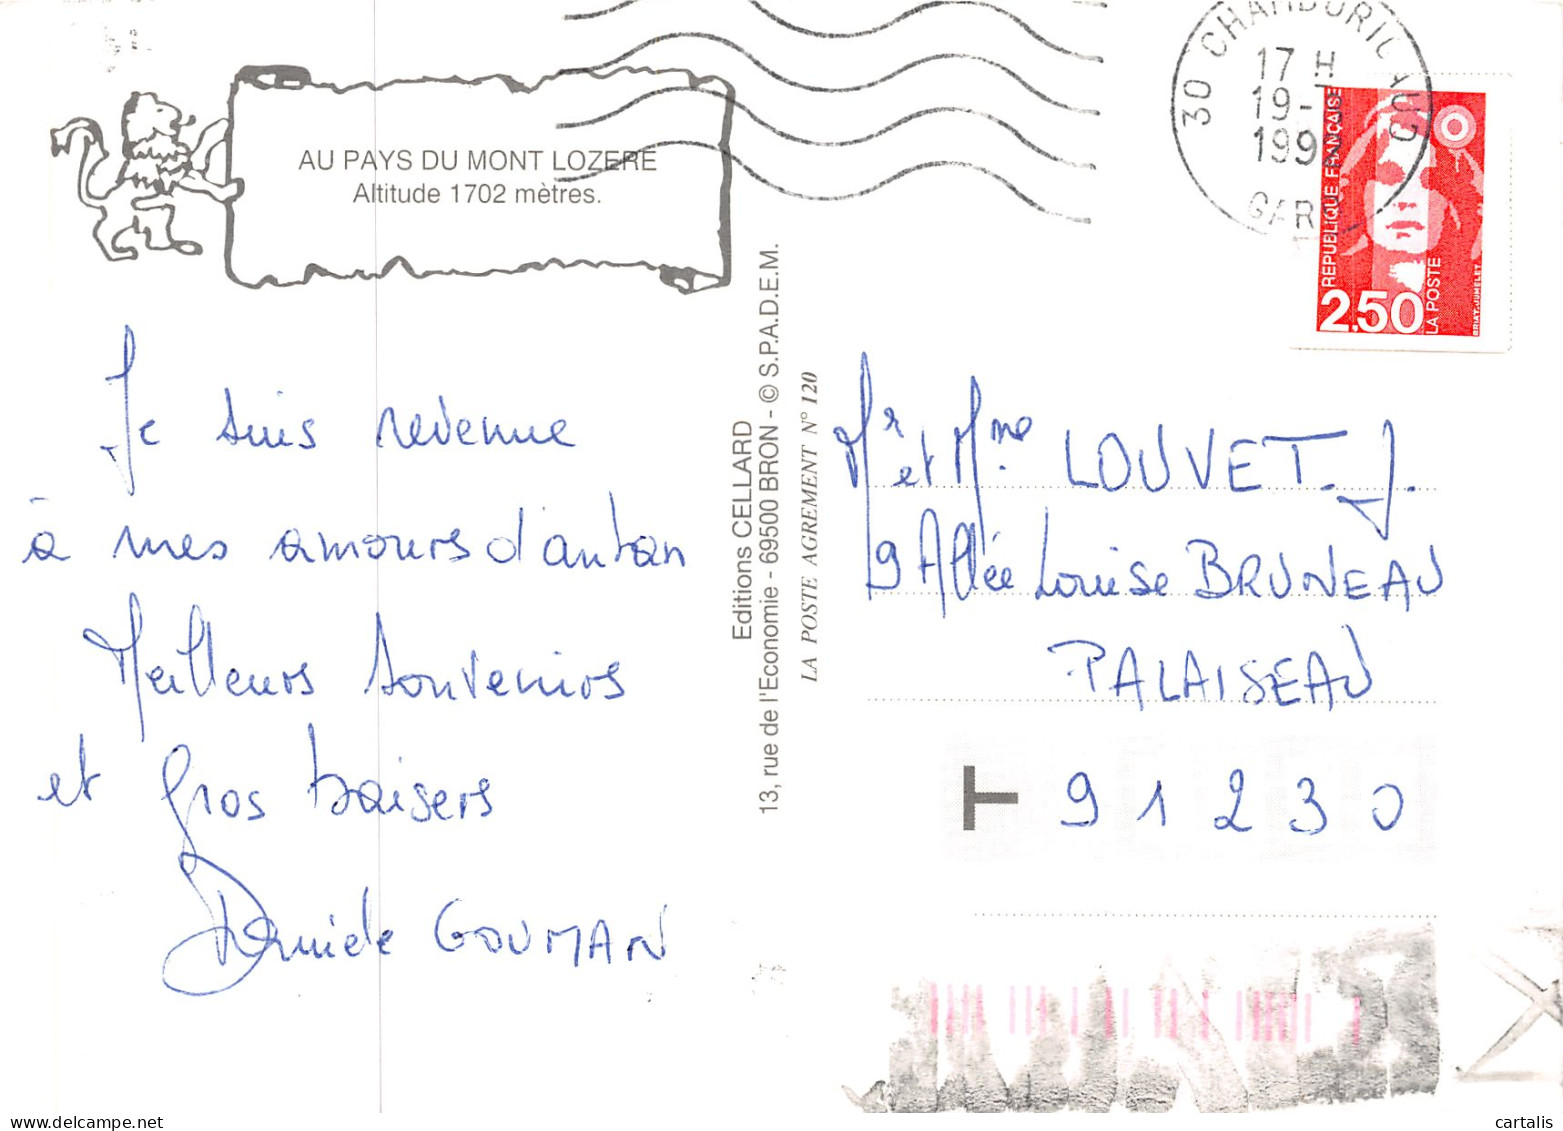 AU PAYS DU MONT LOZERE
Altitude 1702 mètres.
Je suis revenue
à mes amours d'antan
Meilleurs souvenirs
et gros baisers
Danièle GOUMAN
Editions CELLARD
13, rue de l'Economie - 69500 BRON - © S.P.A.D.E.M.
LA POSTE AGREMENT N° 120
30
17 H
19-
199
GARD
REPUBLIQUE FRANÇAISE
2.50
LA POSTE
BRIAT.JUMELET
Mr et Mme LOUVET. J.
9 Allée Louise BRUNEAU
PALAISEAU
T 91230
www.delcampe.net
cartalis